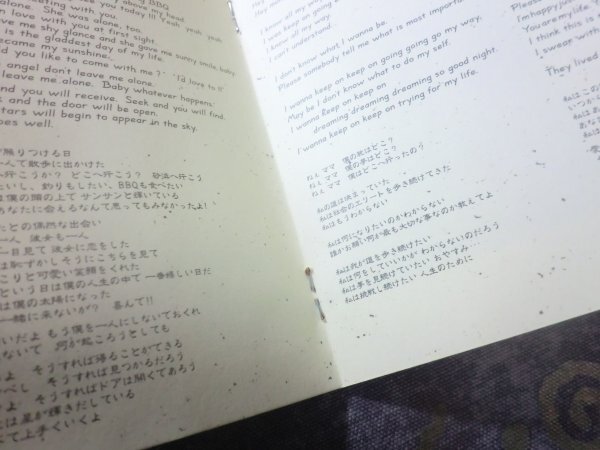 above my head.
g BBQ
eeting with you today !!! Yeah yeah yeah
alone. She was alone, too.
n love with you at first sight
ve me shy glance and she gave me sunny smile, baby.
is is the gladdest day of my life.
ecame my sunshine.
'd you like to come with me?" "I'd love to!!"
angel don't leave me alone.
leave me alone. Baby whatever happens.
and you will receive. Seek and you will find.
k and the door will be open.
tars will begin to appear in the sky.
oes well.
が照りつける日
んで散歩に出かけた
へ行こうか? どこへ行こう? 砂浜へ行こう
たいし、釣りもしたい、BBQも食べたい
は僕の頭の上で サンサンと輝いている
あなたに会えるなんて思ってもみなかったよ!
たとの偶然な出会い
一人 彼女も一人
一目見て 彼女に恋をした
は恥ずかしそうにこちらを見て
こりと可愛い笑顔をくれた
という日は僕の人生の中で 一番嬉しい日だ
は僕の太陽になった
一緒に来ないか? 喜んで!!
いだよ もう僕を一人にしないでおくれ
ないで 何が起ころうとしても
よ そうすれば得ることができる
べし そうすれば見つかるだろう
よ そうすればドアは開くであろう
は星が輝きだしている
て上手くいくよ
I know all my way
I was keep on going
I know all
I can't understand.
I don't know what I wanna be.
Please somebody tell me what is most important
I wanna keep on keep on going going go my way.
May be I don't know what to do my self.
I wanna keep on keep on
dreaming dreaming dreaming so good night.
I wanna keep on keep on trying for my life.
ねぇ ママ 僕の靴はどこ?
ねぇ ママ 僕の夢はどこ?
ねぇ ママ 僕はどこへ行ったのう
私の道は決まっていた
私は社会のエリートを歩き続けてきた
私はもうわからない
私は何になりたいのかわからない
誰かお願い何が最も大切な事なのか教えてよ
私は我が道を歩き続けたい
私は何をしていいかが わからないのだろう
私は夢を見続けていたい おやすみ
私は挑戦し続けたい 人生のために
Please
I'm happy just
You are my life.
I think this is
I swear with
They lived
G